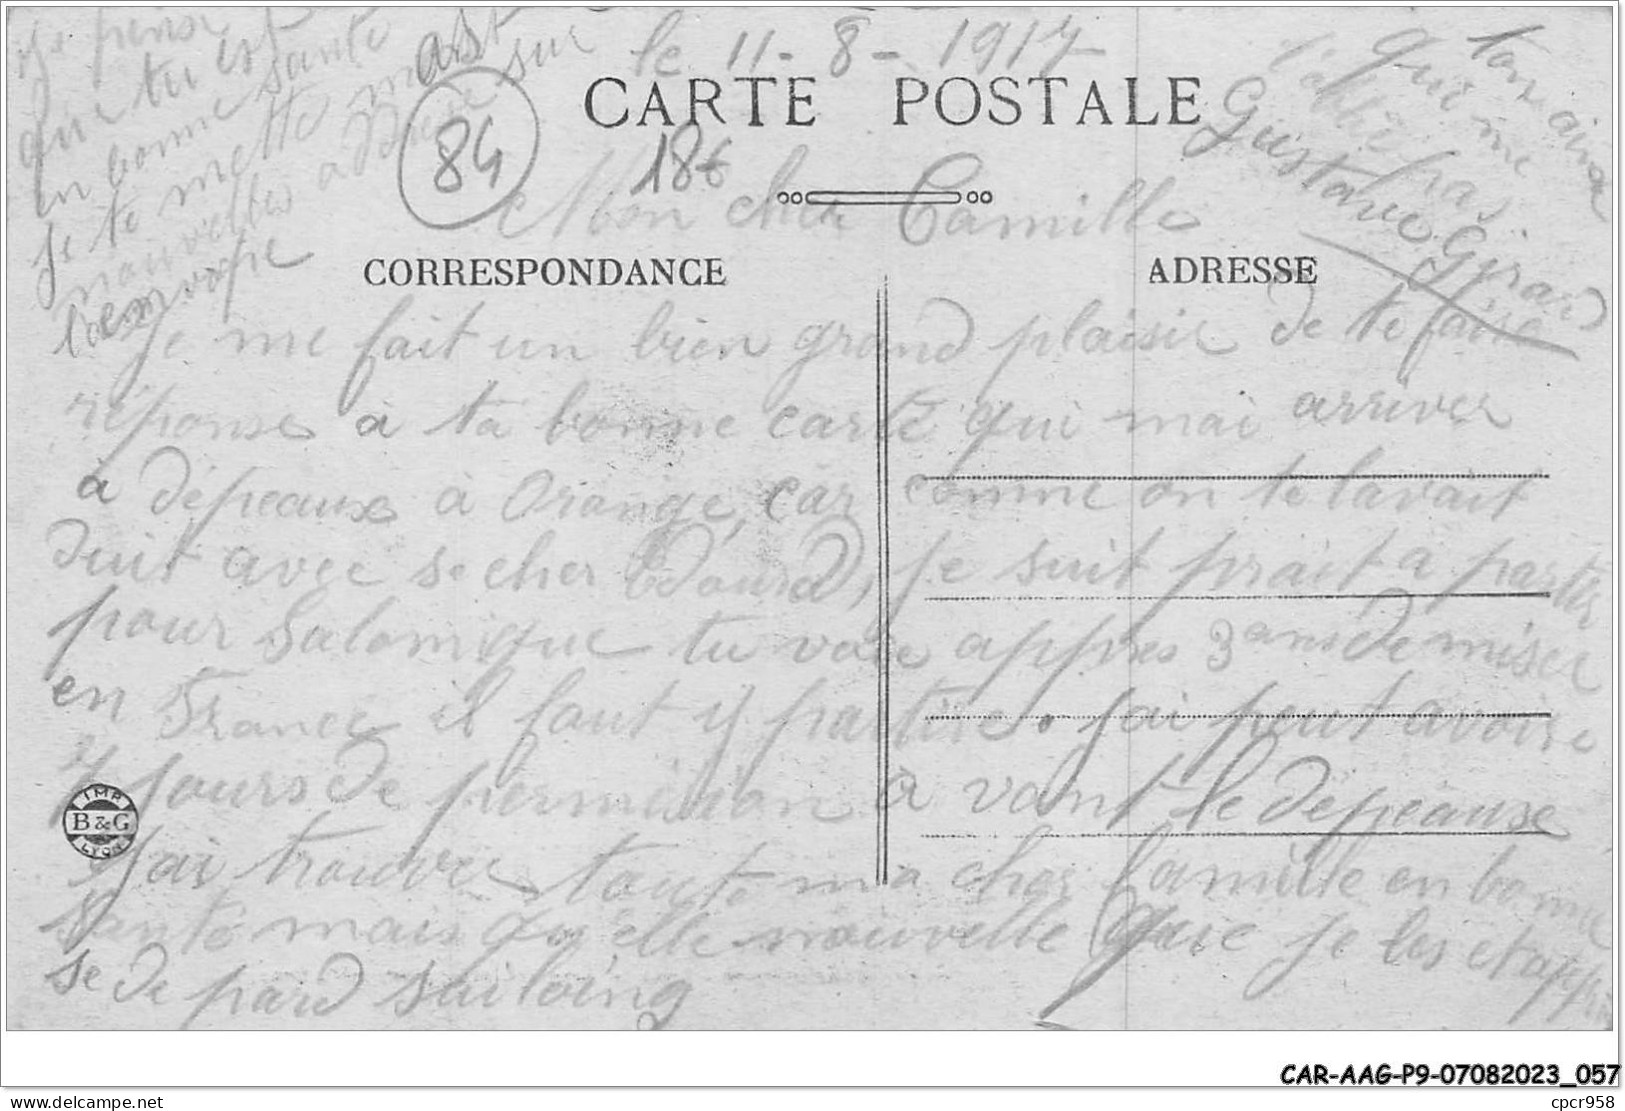 le 11-8-1917
CARTE POSTALE
84
18€
Mon cher Camille
CORRESPONDANCE
ADRESSE
Je me fait un bien grand plaisir de te faire
réponse à ta bonne carte qui mai arriver
à dépeaux à Orange, car comme on te lavait
duit avec se cher Edouard, je suit prait a partir
pour Salonique tu voie appres 3 ans de misere
en France il faut y partire. jai peut avoire
7 jours de permission a vant le dépeause
Jai trouver toute ma cher famille en bonne
santé mais qu'elle nouvelle que je les et appri
se de pard sui loing
je pense
que tu est
en bonne santé
Je te mette mast
nouvelles adresse sur
lenvoppe
ton ami
qui me
t'oublie pas
Gustave Girard
IMP.
B & G
LYON
CAR-AAG-P9-07082023_057
delcampe.net
cpcr958